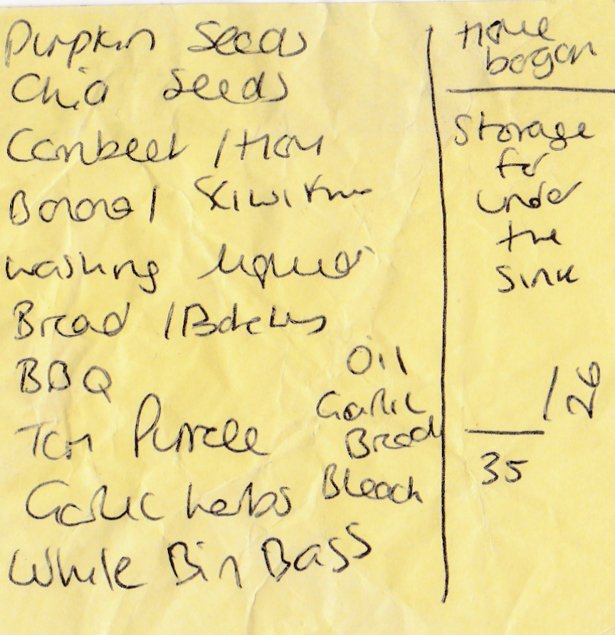 Pumpkin Seeds
Chia Seeds
Cornbeef / Ham
Banana / Kiwi
washing liquid
Bread / Batches
BBQ
Oil
Tom Purree
Garlic
Bread
Garlic herbs
Bleach
White Bin Bags
Home
bargan
Storage
for
under
the
Sink
35